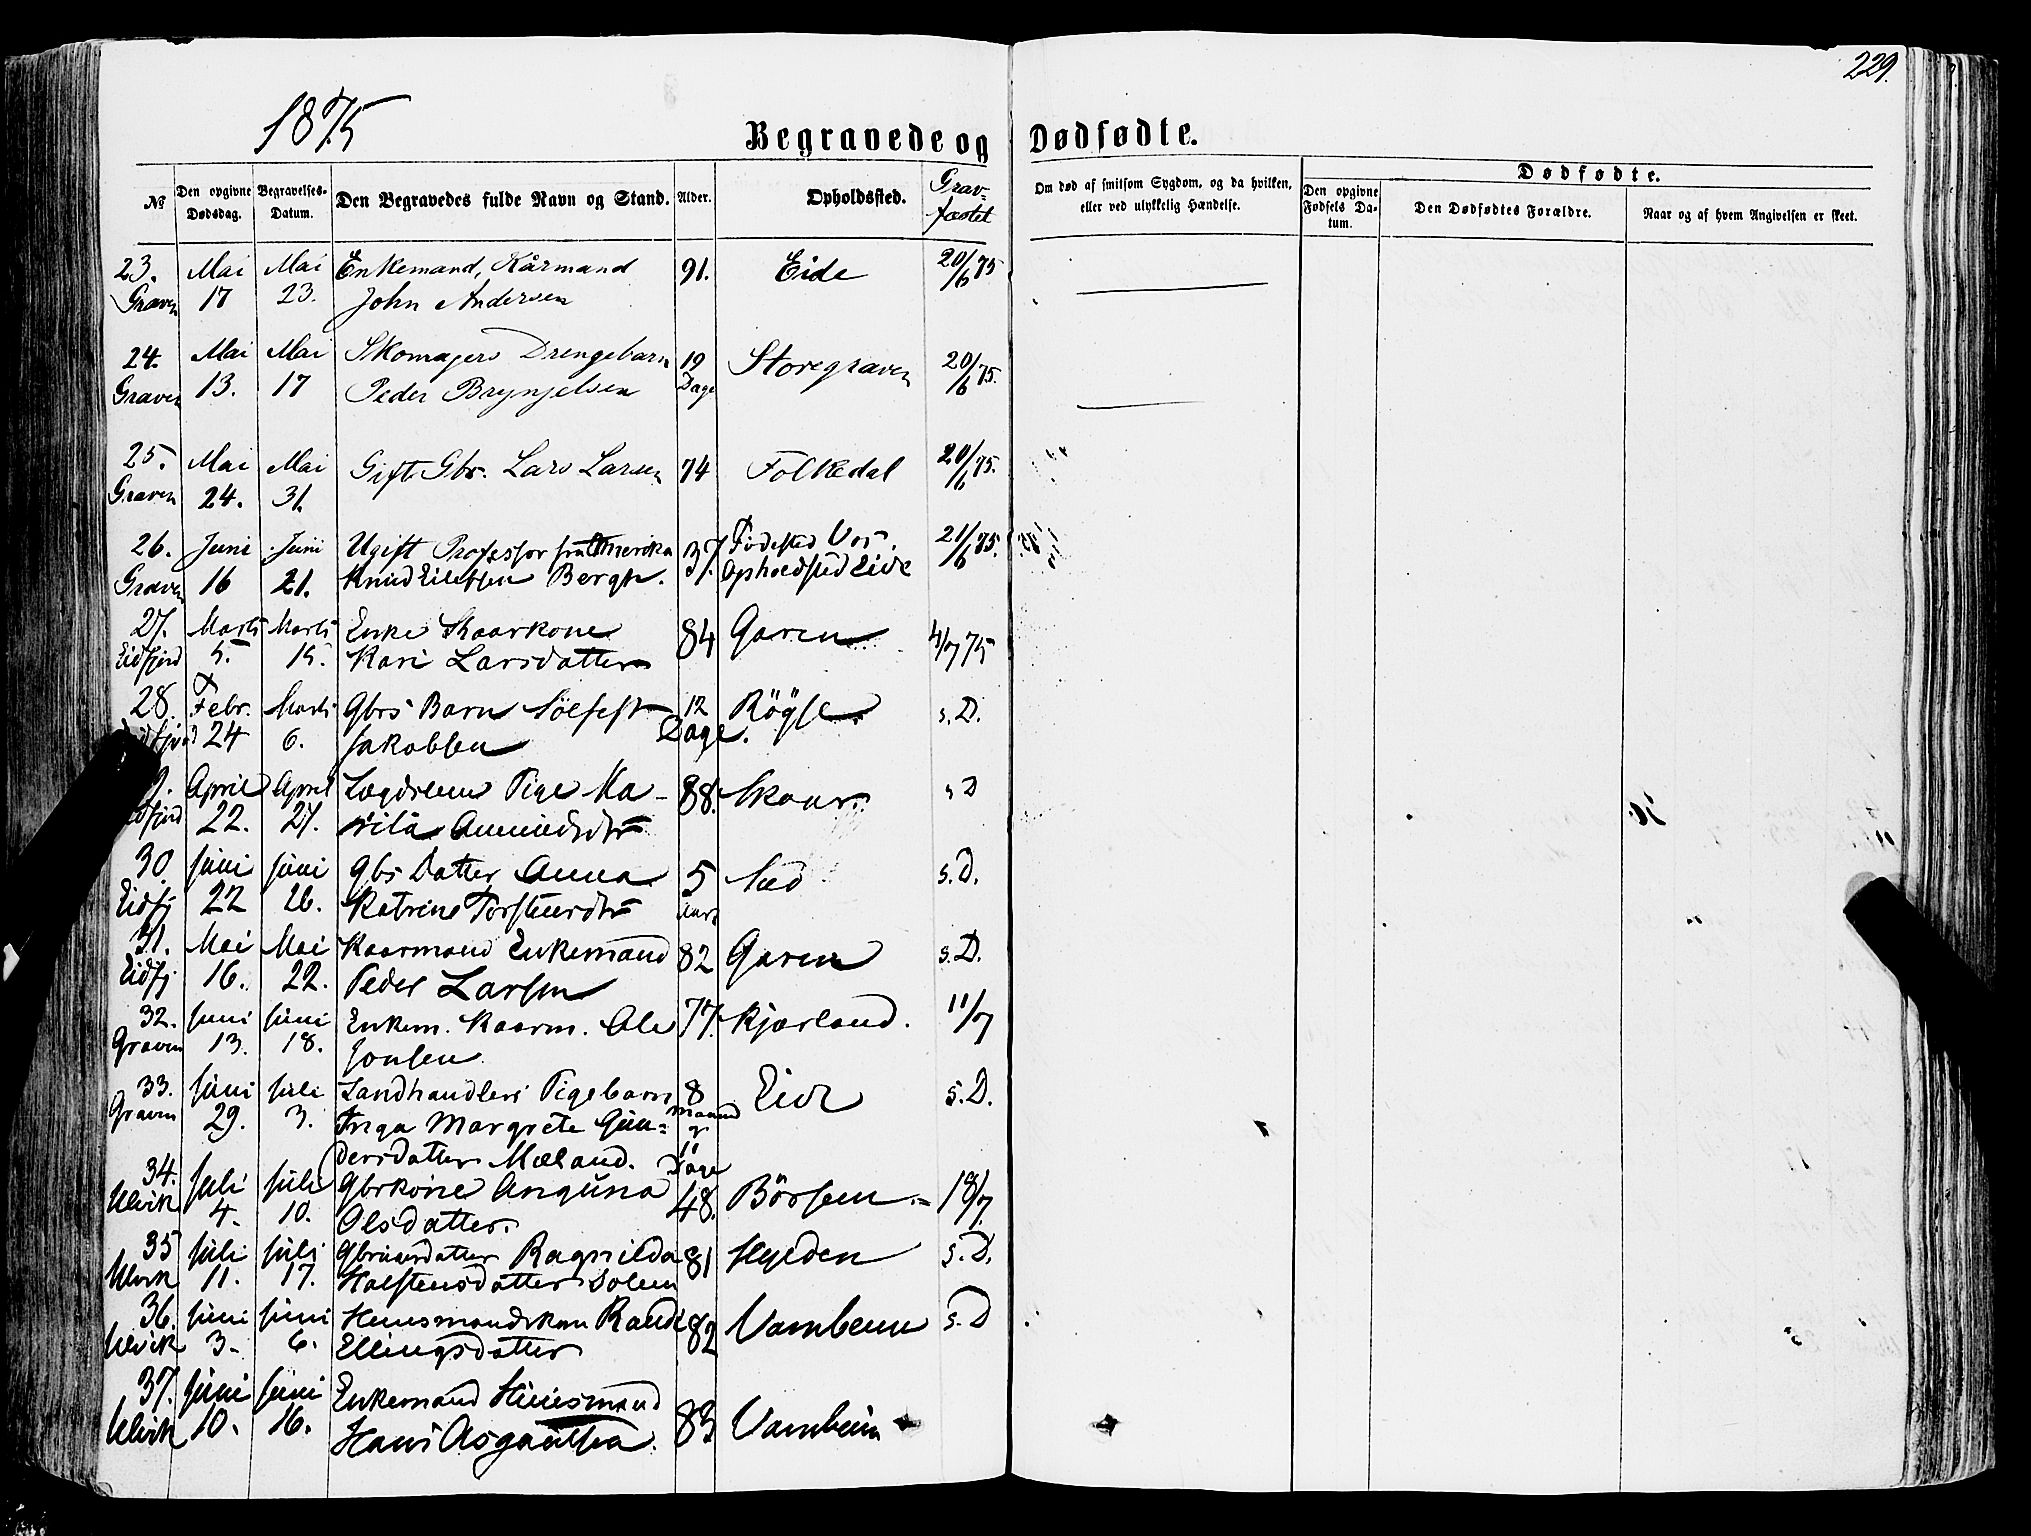 229.
1875
Begravede og Dødfødte.
№
Den opgivne Dødsdag.
Begravelses-Datum.
Den Begravedes fulde Navn og Stand.
Alder.
Opholdssted.
Grav-fæstet
Om død af smitsom Sygdom, og da hvilken, eller ved ulykkelig Hændelse.
Dødfødte.
Den opgivne Fødsels Da-tum.
Den Dødfødtes Forældre.
Naar og af hvem Angivelsen er skeet.
23. Mai Mai Enkemand, Kårmand 91. Eide 20/6 75
Graven 17 23. John Andersen
24. Mai Mai Skomagers Drengebarn 19 Storegraven 20/6 75.
Graven 13. 17 Peder Brynjelsen Dage
25. Mai Mai Gift Gbr. Lars Larsen 74 Folkedal 20/6 75.
Graven 24. 31.
26. Juni Juni Ugift Professor fra Amerika 37. Fødested Vos. 21/6 75.
Graven 16 21. Knud Bergh. Opholdsted Eide
27. Marts Marts Enke Kaarkone 84 Garen 4/7 75
Eidfjord 5. 15. Kari Larsdatter
28. Febr. Marts Gbrs Barn Sölfest 12 Röÿse s. D.
24 6. Jakobsen Dage.
April April Lægdslem Pige Ma- 88. Skaar s D
22. 27. Amundsdtr
30. Juni Juni Gbs Datter Anna 5 Sæd s. D.
Eidfj 22 26. Katrine Torsteinsdtr Aar
31. Mai Mai Kaarmand Enkemand 82 Garen s. D.
Eidfj. 16. 22. Peder Larsen
32. Juni Juni Enkem. Kaarm. Ole 77. Kjærland. 11/7
Graven 13. 18. Jonsen
33. Juni Juli Landhandlers Pigebarn 8 Eide s. D.
Graven 29. 3. Inga Margrete Gun= Maaned
dersdatter Mæland. 11 Dage
34. Juli Juli Gbrkone Anguna 48. Börsem 18/7
Ulvik 4. 10. Olsdatter.
35 Juli Juli Ragnilda 81 Hylden s. D.
Ulvik 11. 17. Halstensdatter Solem
36. Juni Juni Huusmandskone Randi 82 Vambeim s. D
Ulvik 3. 6. Ellingsdatter
37. Juni Juni Enkemand Huusmand 83 Vambeim
Ulvik 10. 16. Hans Asgautsen.